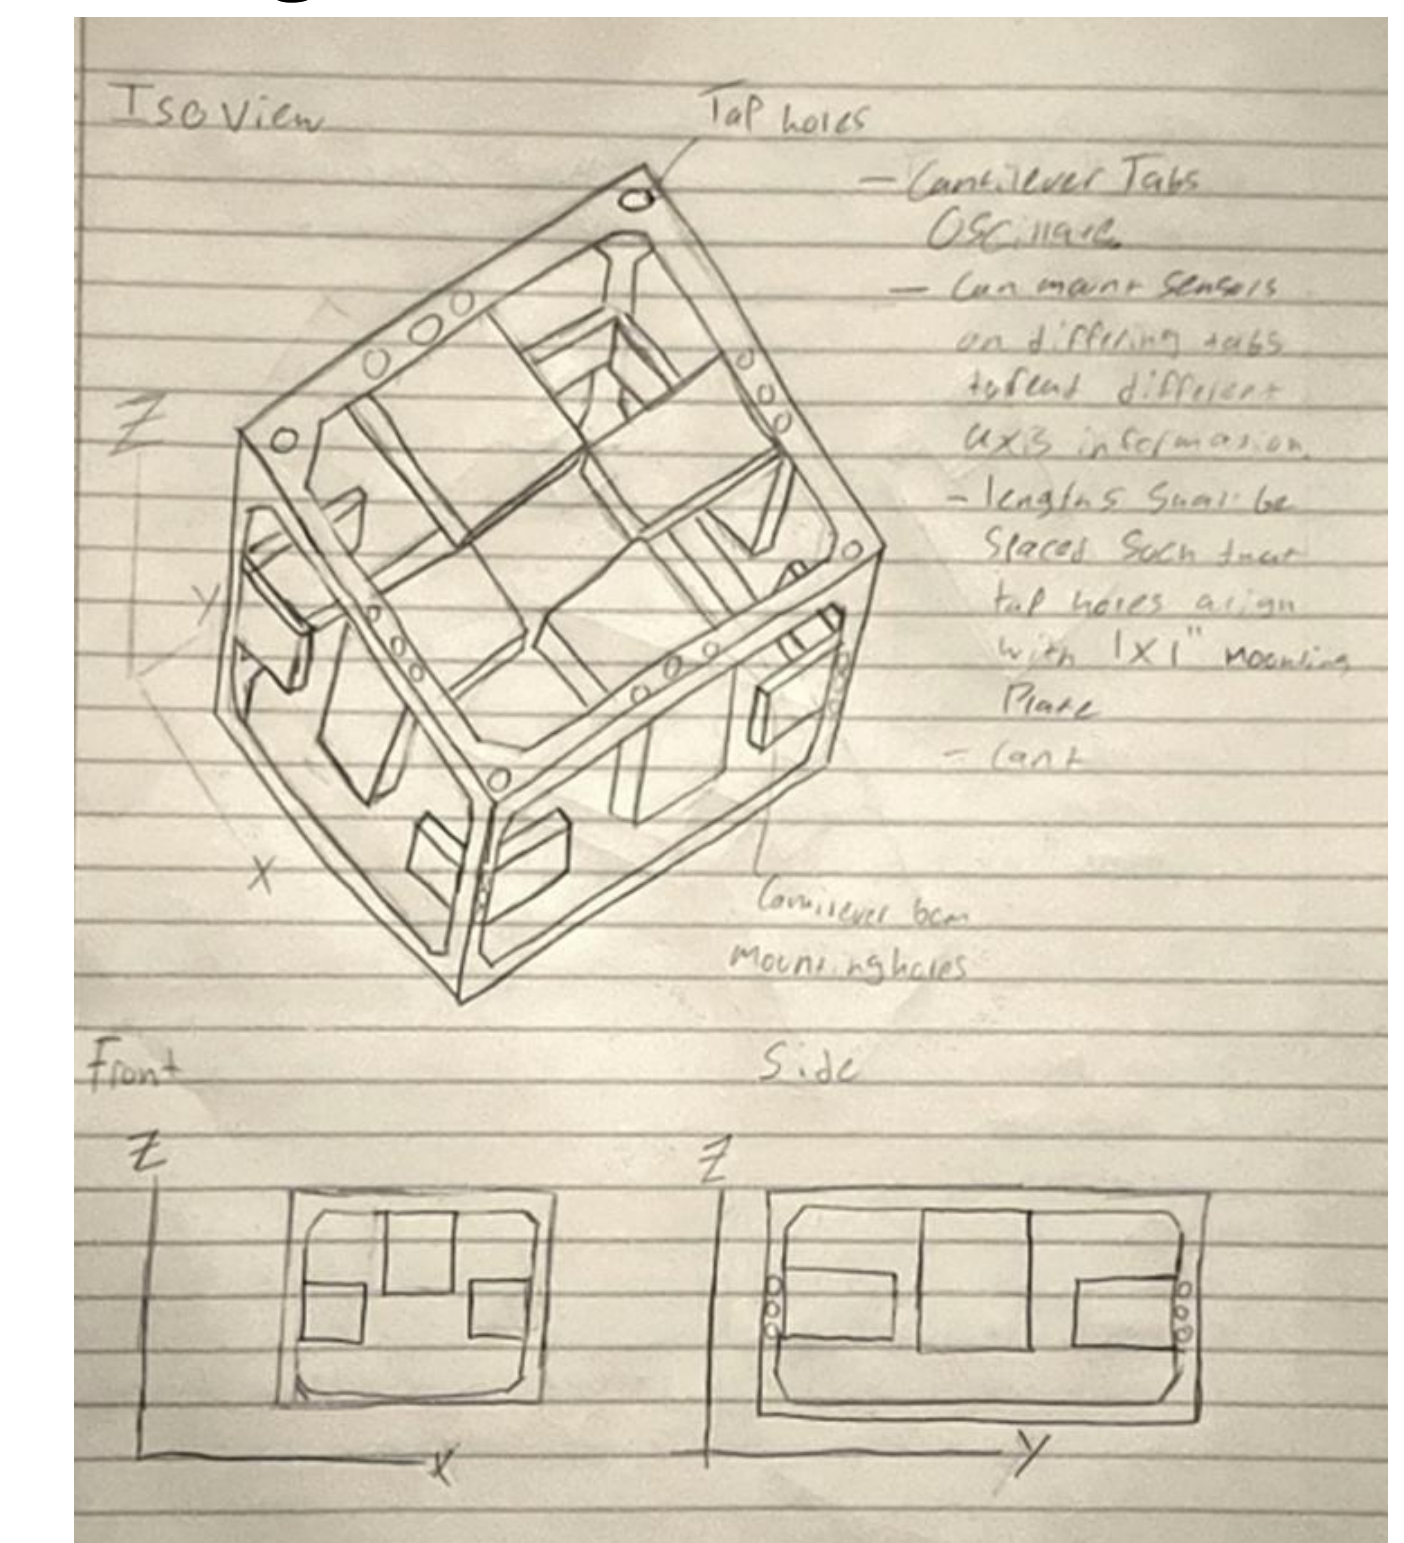 Iso View
Tap holes
- Cantilever Tabs
Oscillate
- Can mount sensors
on differing tabs
to read different
axis information.
- lengths shall be
spaced such that
tap holes align
with 1x1" mounting
Plate
- Cant
Z
Y
X
Cantilever beam
mounting holes
Front
Side
Z
Z
X
Y